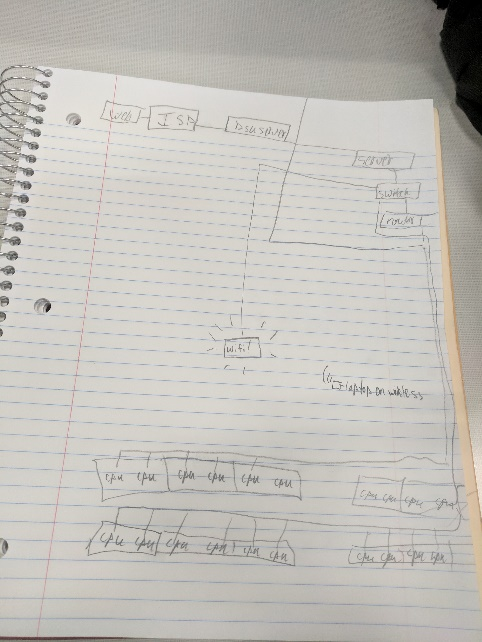 web ISP
server
switch
router
wifi
laptop on wireless
cpu cpu cpu cpu cpu cpu cpu cpu cpu cpu
cpu cpu cpu cpu cpu cpu cpu cpu cpu cpu